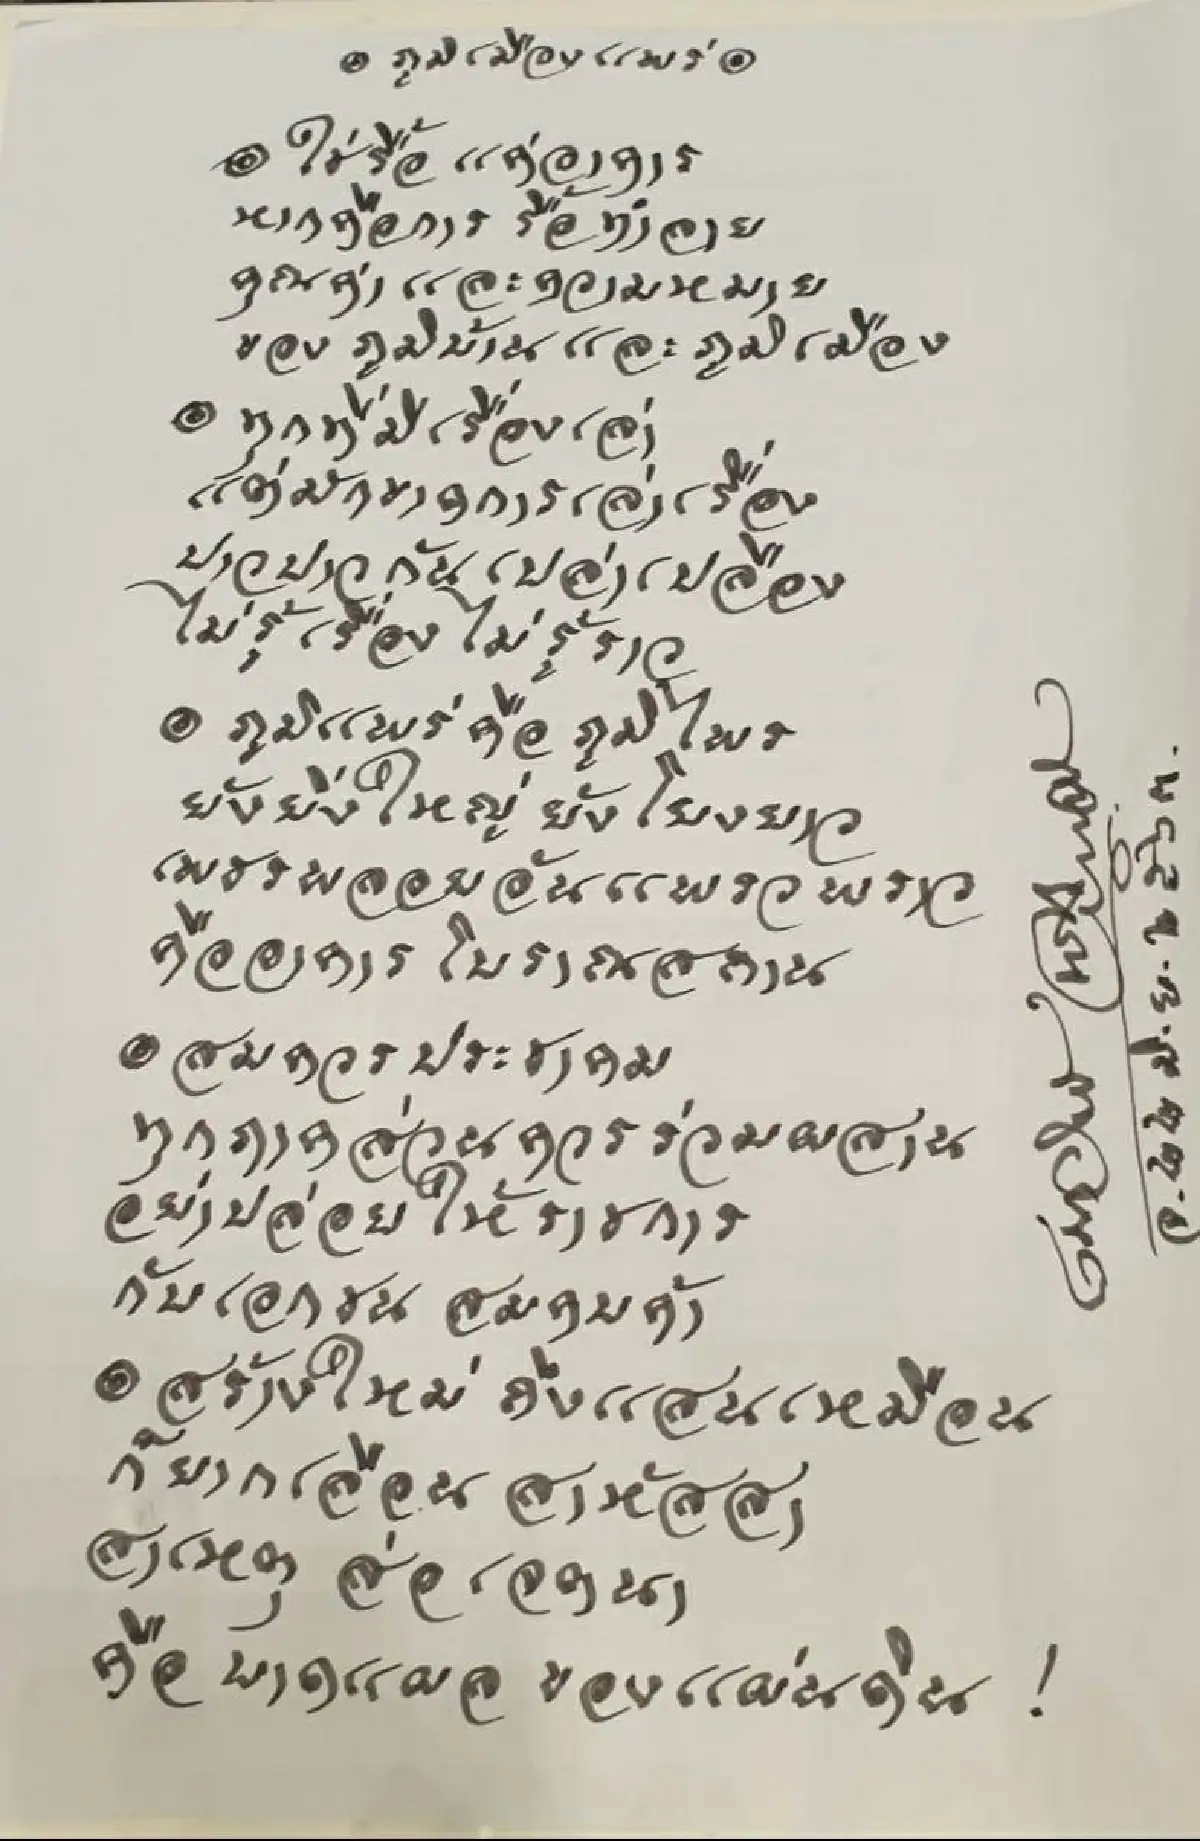 ๏ ภูมิเมืองแพร่ ๏
๏ ใช่รื้อ แค่อาคาร
หากคือการ รื้อทำลาย
คุณค่า และความหมาย
ของ ภูมิบ้าน และ ภูมิเมือง
๏ ทุกที่มีเรื่องเล่า
แต่มักขาดการเล่าเรื่อง
ป่าวป่าว กันเปล่าเปลือง
ไม่รู้เรื่อง ไม่รู้ราว
๏ ภูมิแพร่ คือ ภูมิไพร
ยังยิ่งใหญ่ ยังโยงยาว
เพชรพลอยอันแพรวพราว
คืออาคาร โบราณสถาน
๏ สมควรประชาคม
ทุกภาคส่วนควรร่วมผสาน
อย่าปล่อยให้ราชการ
กับเอกชน สมคบค้า
๏ สร้างใหม่ ถึงแสนเหมือน
ก็ยากเลือน สาหัสสา
สาเหตุ ส่อเจตนา
คือ บาดแผล ของแผ่นดิน !
เนาวรัตน์ พงษ์ไพบูลย์
จ. ๒๒ มิ.ย. ๒๕๖๓.